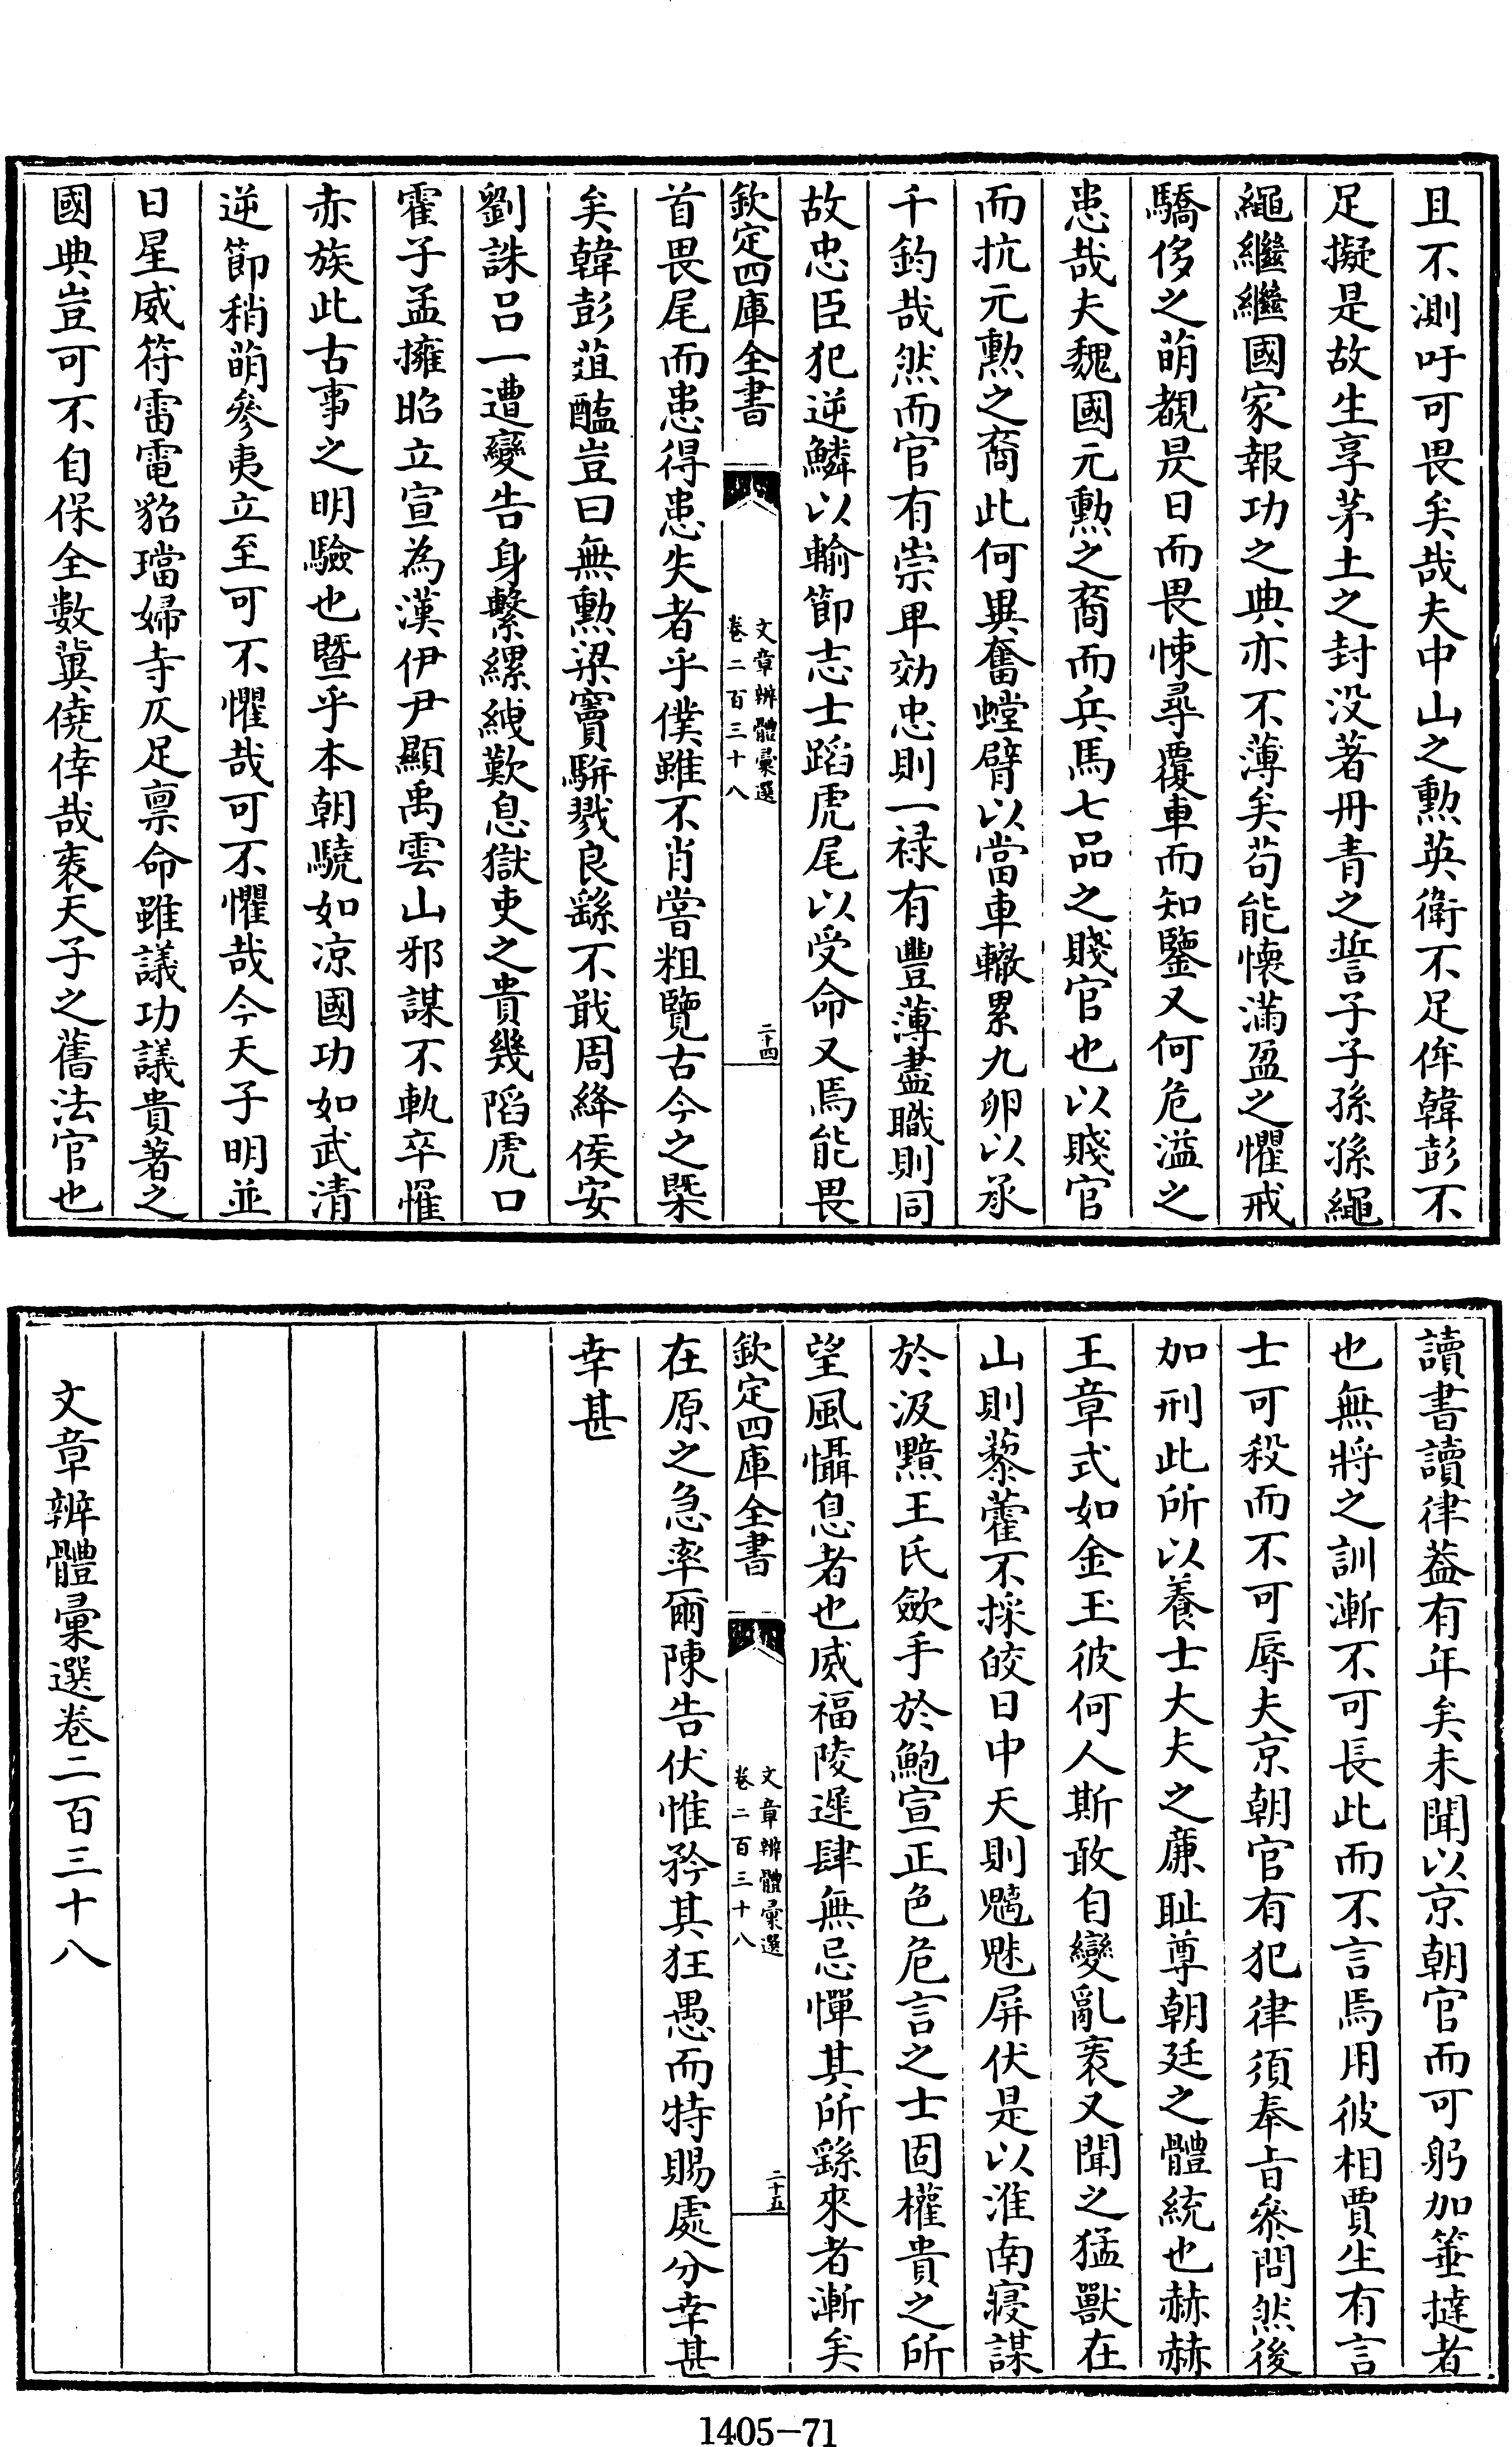 且不測吁可畏矣哉夫中山之勲英衛不足侔韓彭不
足擬是故生享茅土之封没著丹青之誓子子孫孫繩
繩繼繼國家報功之典亦不薄矣苟能懐滿盈之懼戒
驕侈之萌覩昃日而畏悚尋覆車而知鑒又何危溢之
患哉夫魏國元勲之裔而兵馬七品之賤官也以賤官
而抗元勲之裔此何異奮螳臂以當車轍累九卵以承
千鈞哉然而官有崇卑効忠則一禄有豐薄盡職則同
故忠臣犯逆鱗以輸節志士蹈虎尾以受命又焉能畏
欽定四庫全書
文章辨體彚選
卷二百三十八
二十四
首畏尾而患得患失者乎僕雖不肖嘗粗覽古今之槩
矣韓彭葅醢豈曰無勲梁竇駢戮良繇不戢周絳侯安
劉誅吕一遭變告身繫縲絏歎息獄吏之貴幾陷虎口
霍子孟擁昭立宣為漢伊尹顯禹雲山邪謀不軌卒罹
赤族此古事之明驗也曁乎本朝驍如凉國功如武清
逆節稍萌參夷立至可不懼哉可不懼哉今天子明並
日星威符雷電貂璫婦寺仄足禀命雖議功議貴著之
國典豈可不自保全數冀僥倖哉袠天子之舊法官也
讀書讀律葢有年矣未聞以京朝官而可躬加箠撻者
也無將之訓漸不可長此而不言焉用彼相賈生有言
士可殺而不可辱夫京朝官有犯律須奉㫖叅問然後
加刑此所以養士大夫之亷耻尊朝廷之體統也赫赫
王章式如金玉彼何人斯敢自變亂袠又聞之猛獸在
山則藜藿不採皎日中天則魑魅屏伏是以淮南寢謀
於汲黯王氏歛手於鮑宣正色危言之士固權貴之所
望風懾息者也威福陵遲肆無忌憚其所繇來者漸矣
欽定四庫全書
文章辨體彚選
卷二百三十八
二十五
在原之急率爾陳告伏惟矜其狂愚而特賜處分幸甚
幸甚
文章辨體彚選卷二百三十八
1405-71